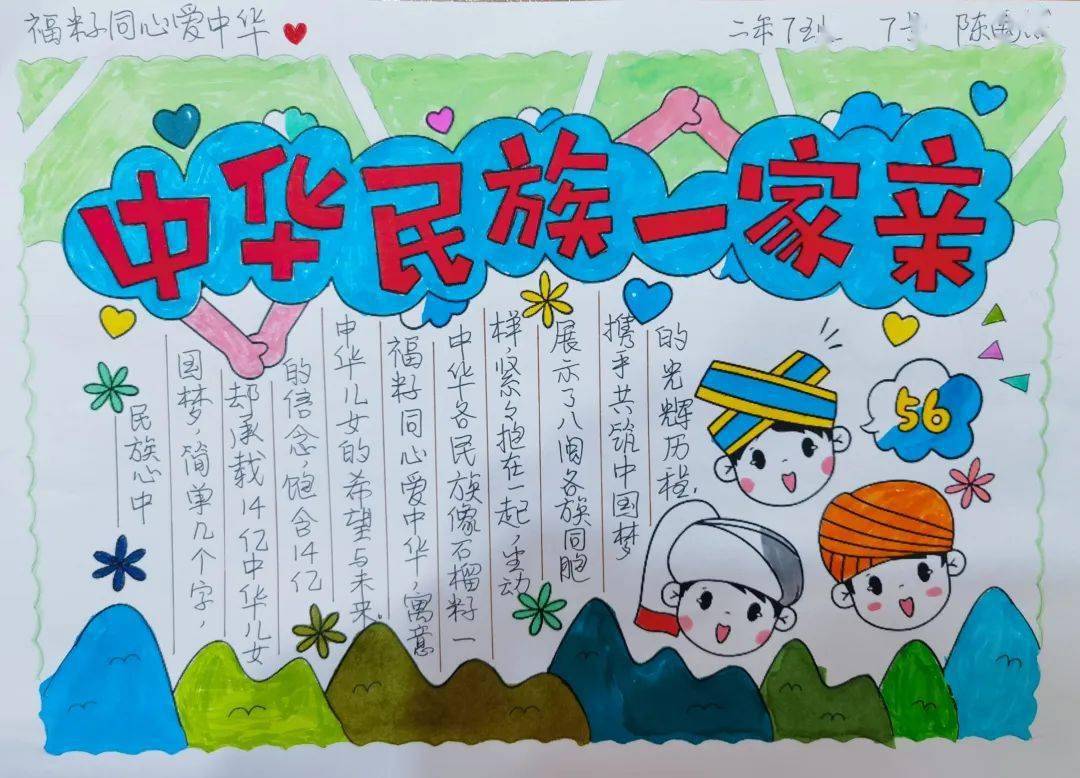 福籽同心爱中华
二年7班 7号 陈
中华民族一家亲
民族心中
国梦,简单几个字,
却承载14亿中华儿女
的信念,饱含14亿
中华儿女的希望与未来.
福籽同心爱中华,寓意
中华各民族像石榴籽一
样,紧々抱在一起,生动
展示了八闽各族同胞
携手共筑中国梦
的光辉历程.
56